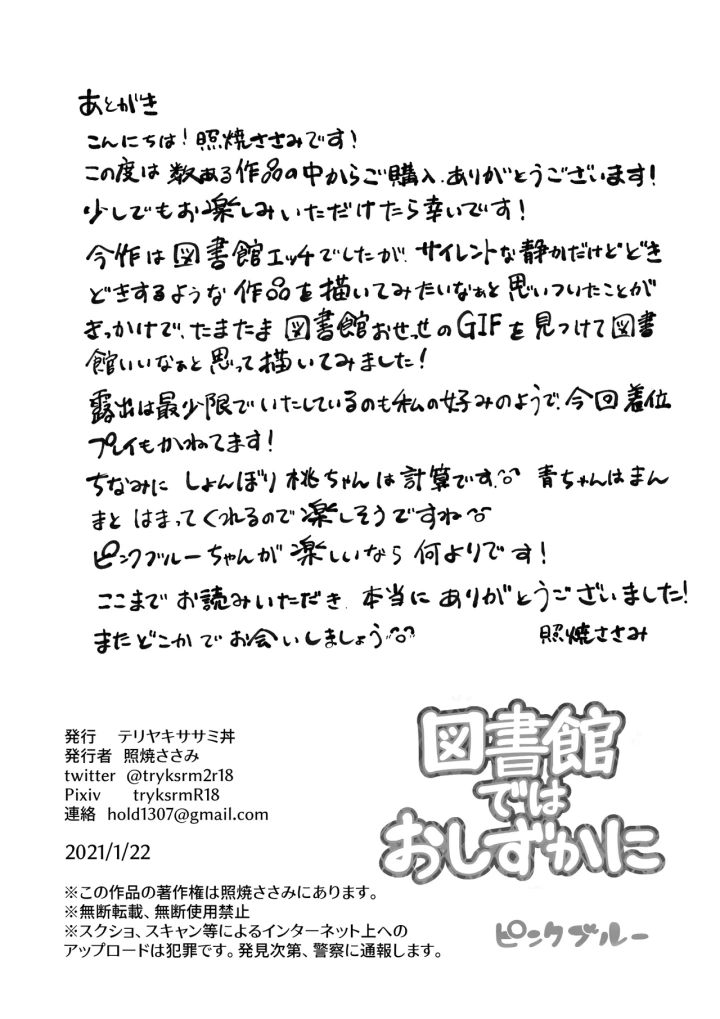 あとがき
こんにちは！照焼ささみです！
この度は数ある作品の中からご購入、ありがとうございます！
少しでもお楽しみいただけたら幸いです！
今作は図書館エッチでしたが、サイレントな静かだけどどき
どきするような作品を描いてみたいなぁと思いついたことが
きっかけで、たまたま図書館おせっせのGIFを見つけて図書
館いいなぁと思って描いてみました！
露出は最少限でいたしているのも私の好みのようで、今回着位
プレイもかねてます！
ちなみにしょんぼり桃ちゃんは計算です。青ちゃんはまん
まとはまってくれるので楽しそうですね
ピンクブルーちゃんが楽しいなら何よりです！
ここまでお読みいただき、本当にありがとうございました！
またどこかでお会いしましょう
照焼ささみ
発行 テリヤキササミ丼
発行者 照焼ささみ
twitter @tryksrm2r18
Pixiv tryksrmR18
連絡 hold1307@gmail.com
2021/1/22
※この作品の著作権は照焼ささみにあります。
※無断転載、無断使用禁止
※スクショ、スキャン等によるインターネット上への
アップロードは犯罪です。発見次第、警察に通報します。
図書館
では
おしずかに
ピンクブルー